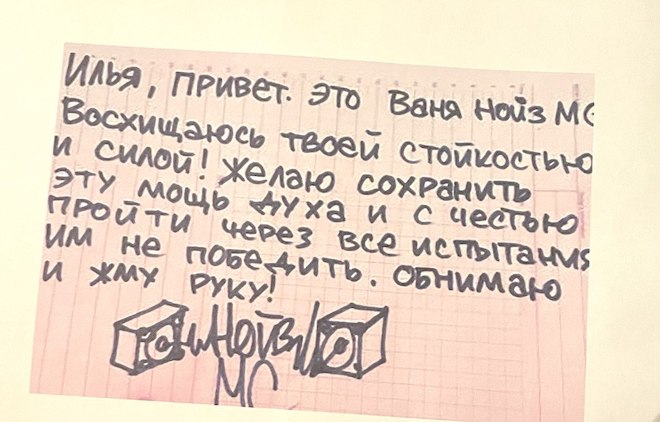 Илья, привет. Это Ваня Нойз МС
Восхищаюсь твоей стойкостью
и силой! Желаю сохранить
эту мощь духа и с честью
пройти через все испытания
им не победить. Обнимаю
и жму руку!
Нойз
МС